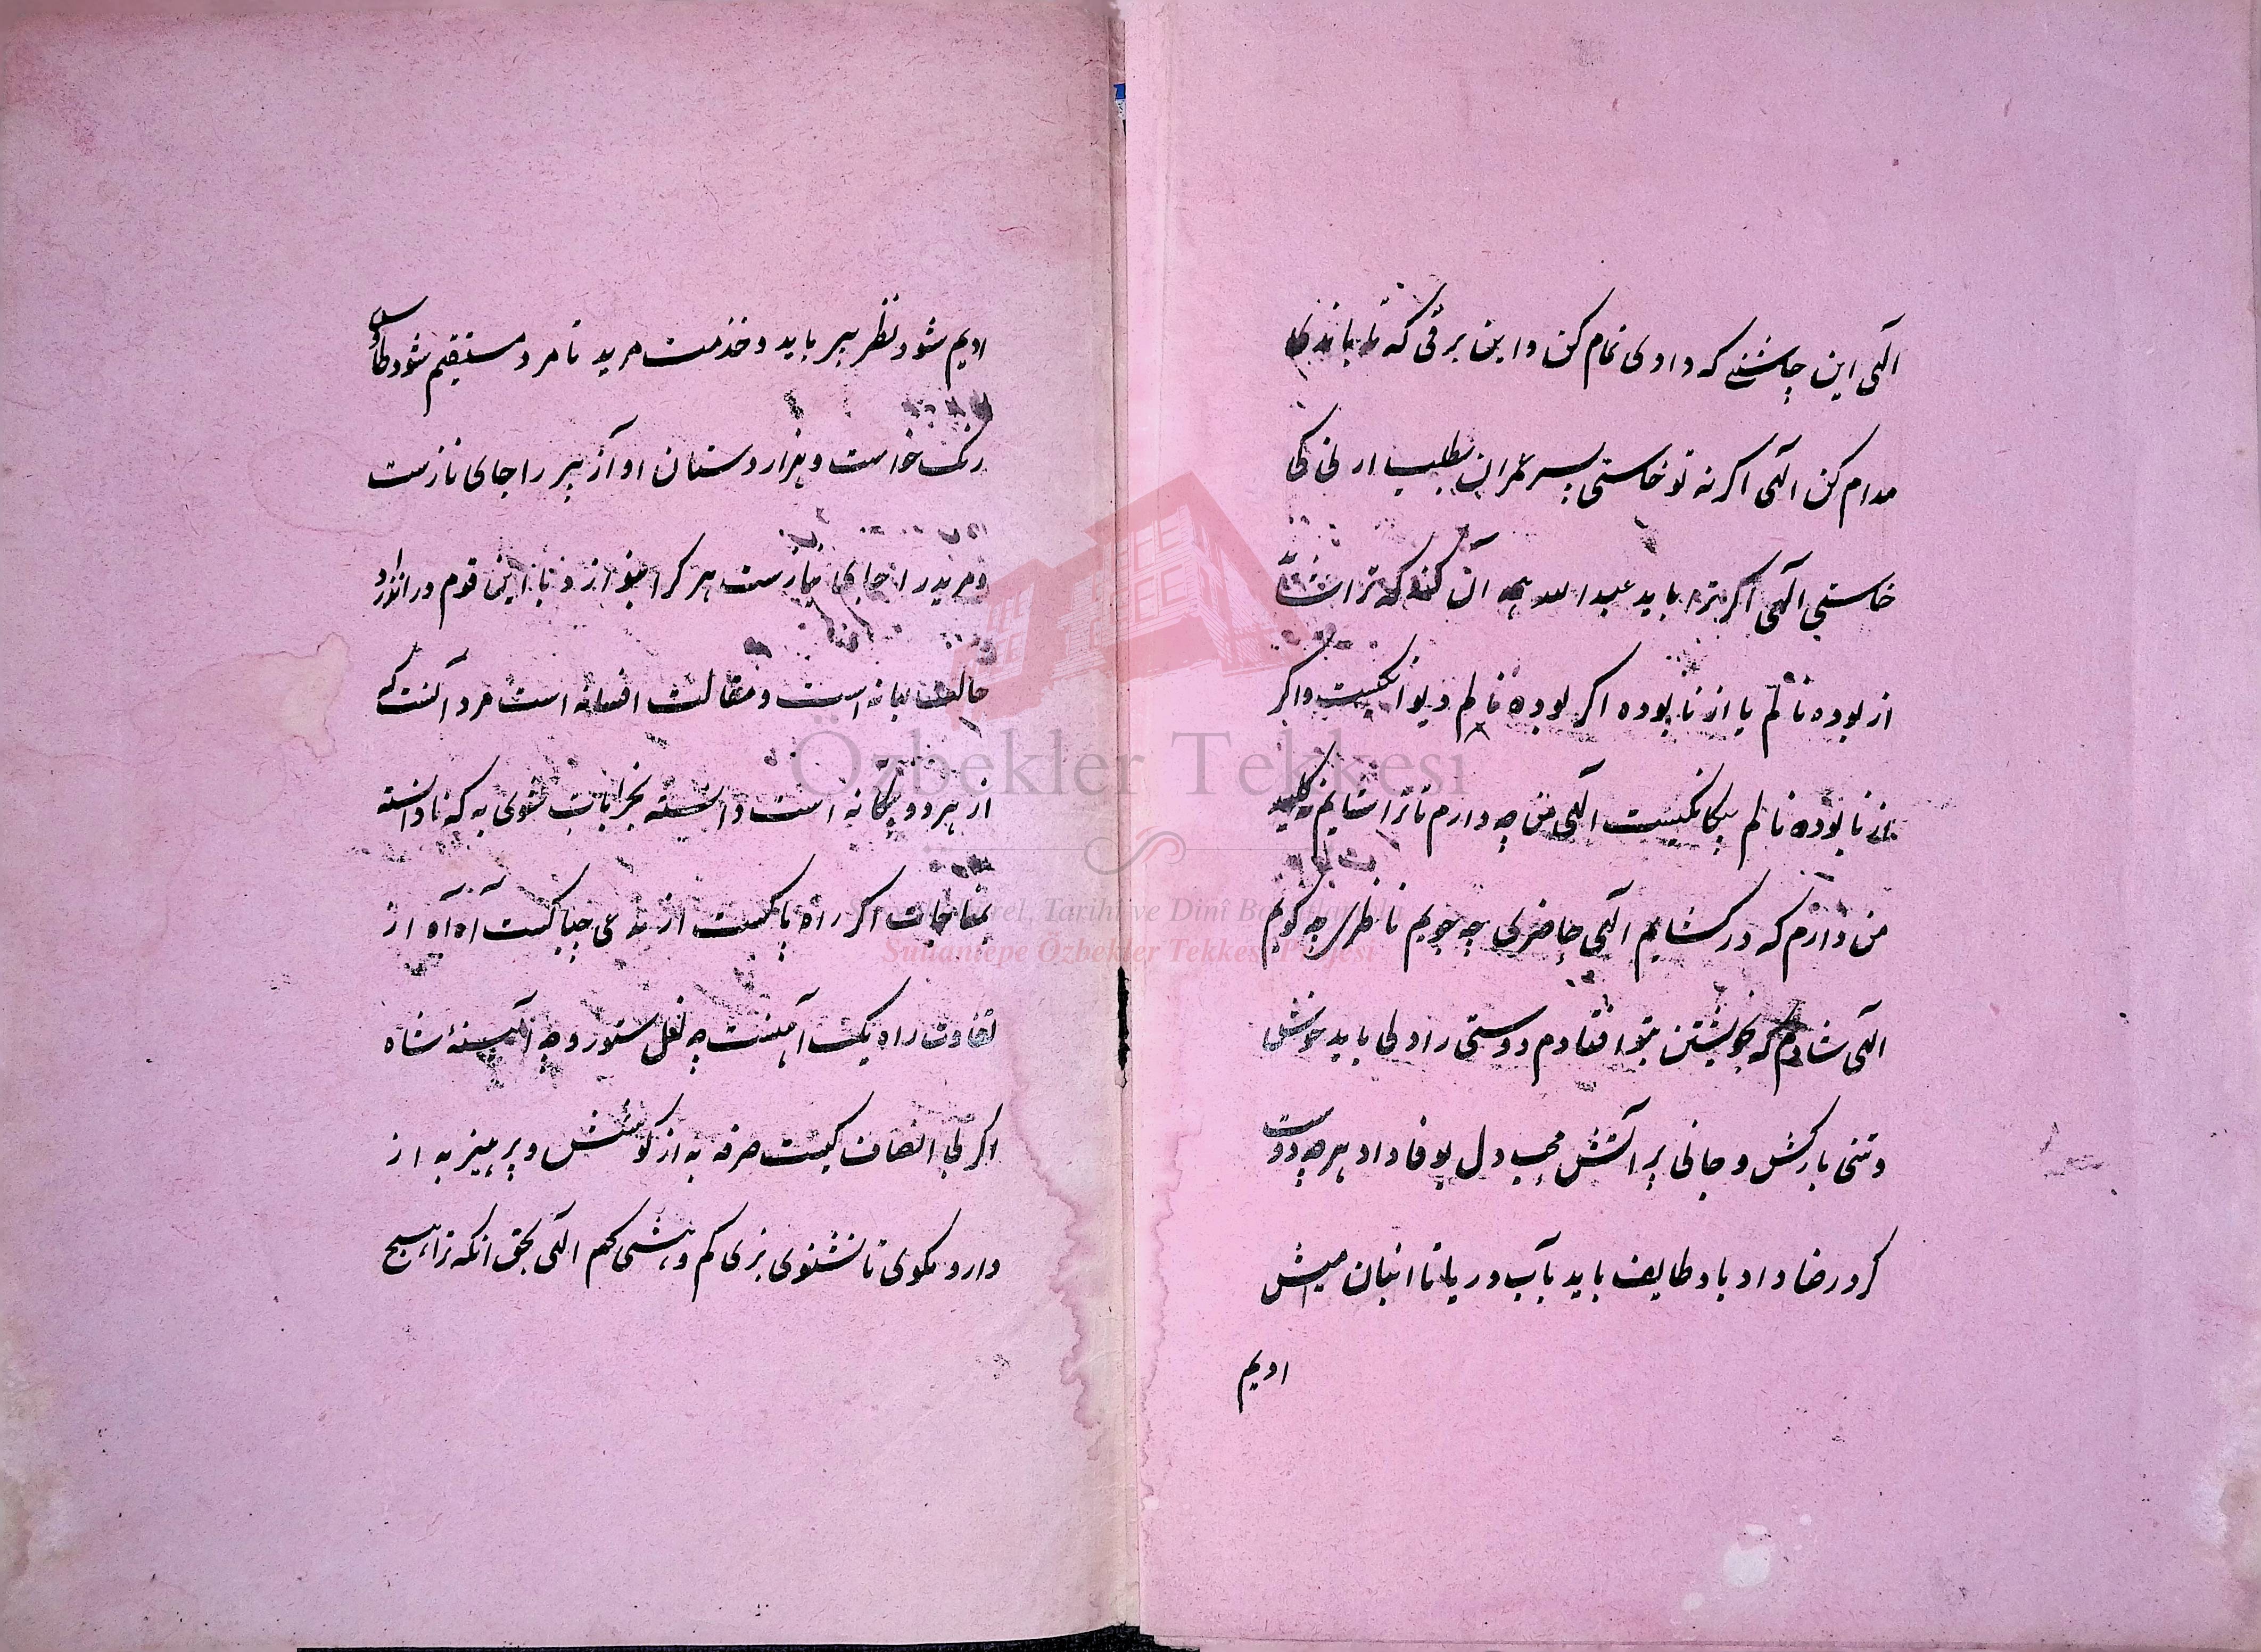 الهی این چاشنی که دادی تمام کن و این برقی که تابانیدی
مدام کن الهی اکر نه تو خاستی پسر عمران بطلب ارنی کی
خاستی الهی اکر ترا باید عبد الله همه آن کند که ترا
از بوده نالم یا از نابوده اکر بوده نالم دیوانکیست واکر
از نابوده نالم بیکانکیست الهی من چه دارم تا ترا شایم نه کلید
من دارم که در کشایم الهی حاضری چه جویم ناظری چه کویم
الهی شادم که نه بخویشتن بتو افتادم دوستی را دلی باید خوش
و تنی بارکش و جانی پر آتش محب دل بوفا داد هر چه دوست
کرد رضا داد باد طایف باید بآب دریا تا انبان میش
ادیم
ادیم شود نظر پیر باید و خذمت مرید تا مرد مستقیم شود طاوس
رنک خواست و هزاردستان آواز پیر را جای نازست
و مرید را جای نیازست هر کرا بنوازد با این قوم دراندازد
حالت بهانه است و مقالت افسانه است مرد آنست که
از هر دو بیکانه است دانسته بخرابات شوی به که نادانسته
بمناجات اکر راه پاکست از مدعی چه باکست آه آه از
تفاوت راه یک آهنست چه نعل ستور و چه آیینهٔ شاه
اکر بی انصاف کیست صرفه به از کوشش و پرهیز به از
دارو مکوی تا نشنوی بزی کم و باشی کم الهی بحق انکه ترا هیچ
Özbekler Tekkesi
Tarihî ve Dinî
Sultantepe Özbekler Tekkesi Projesi